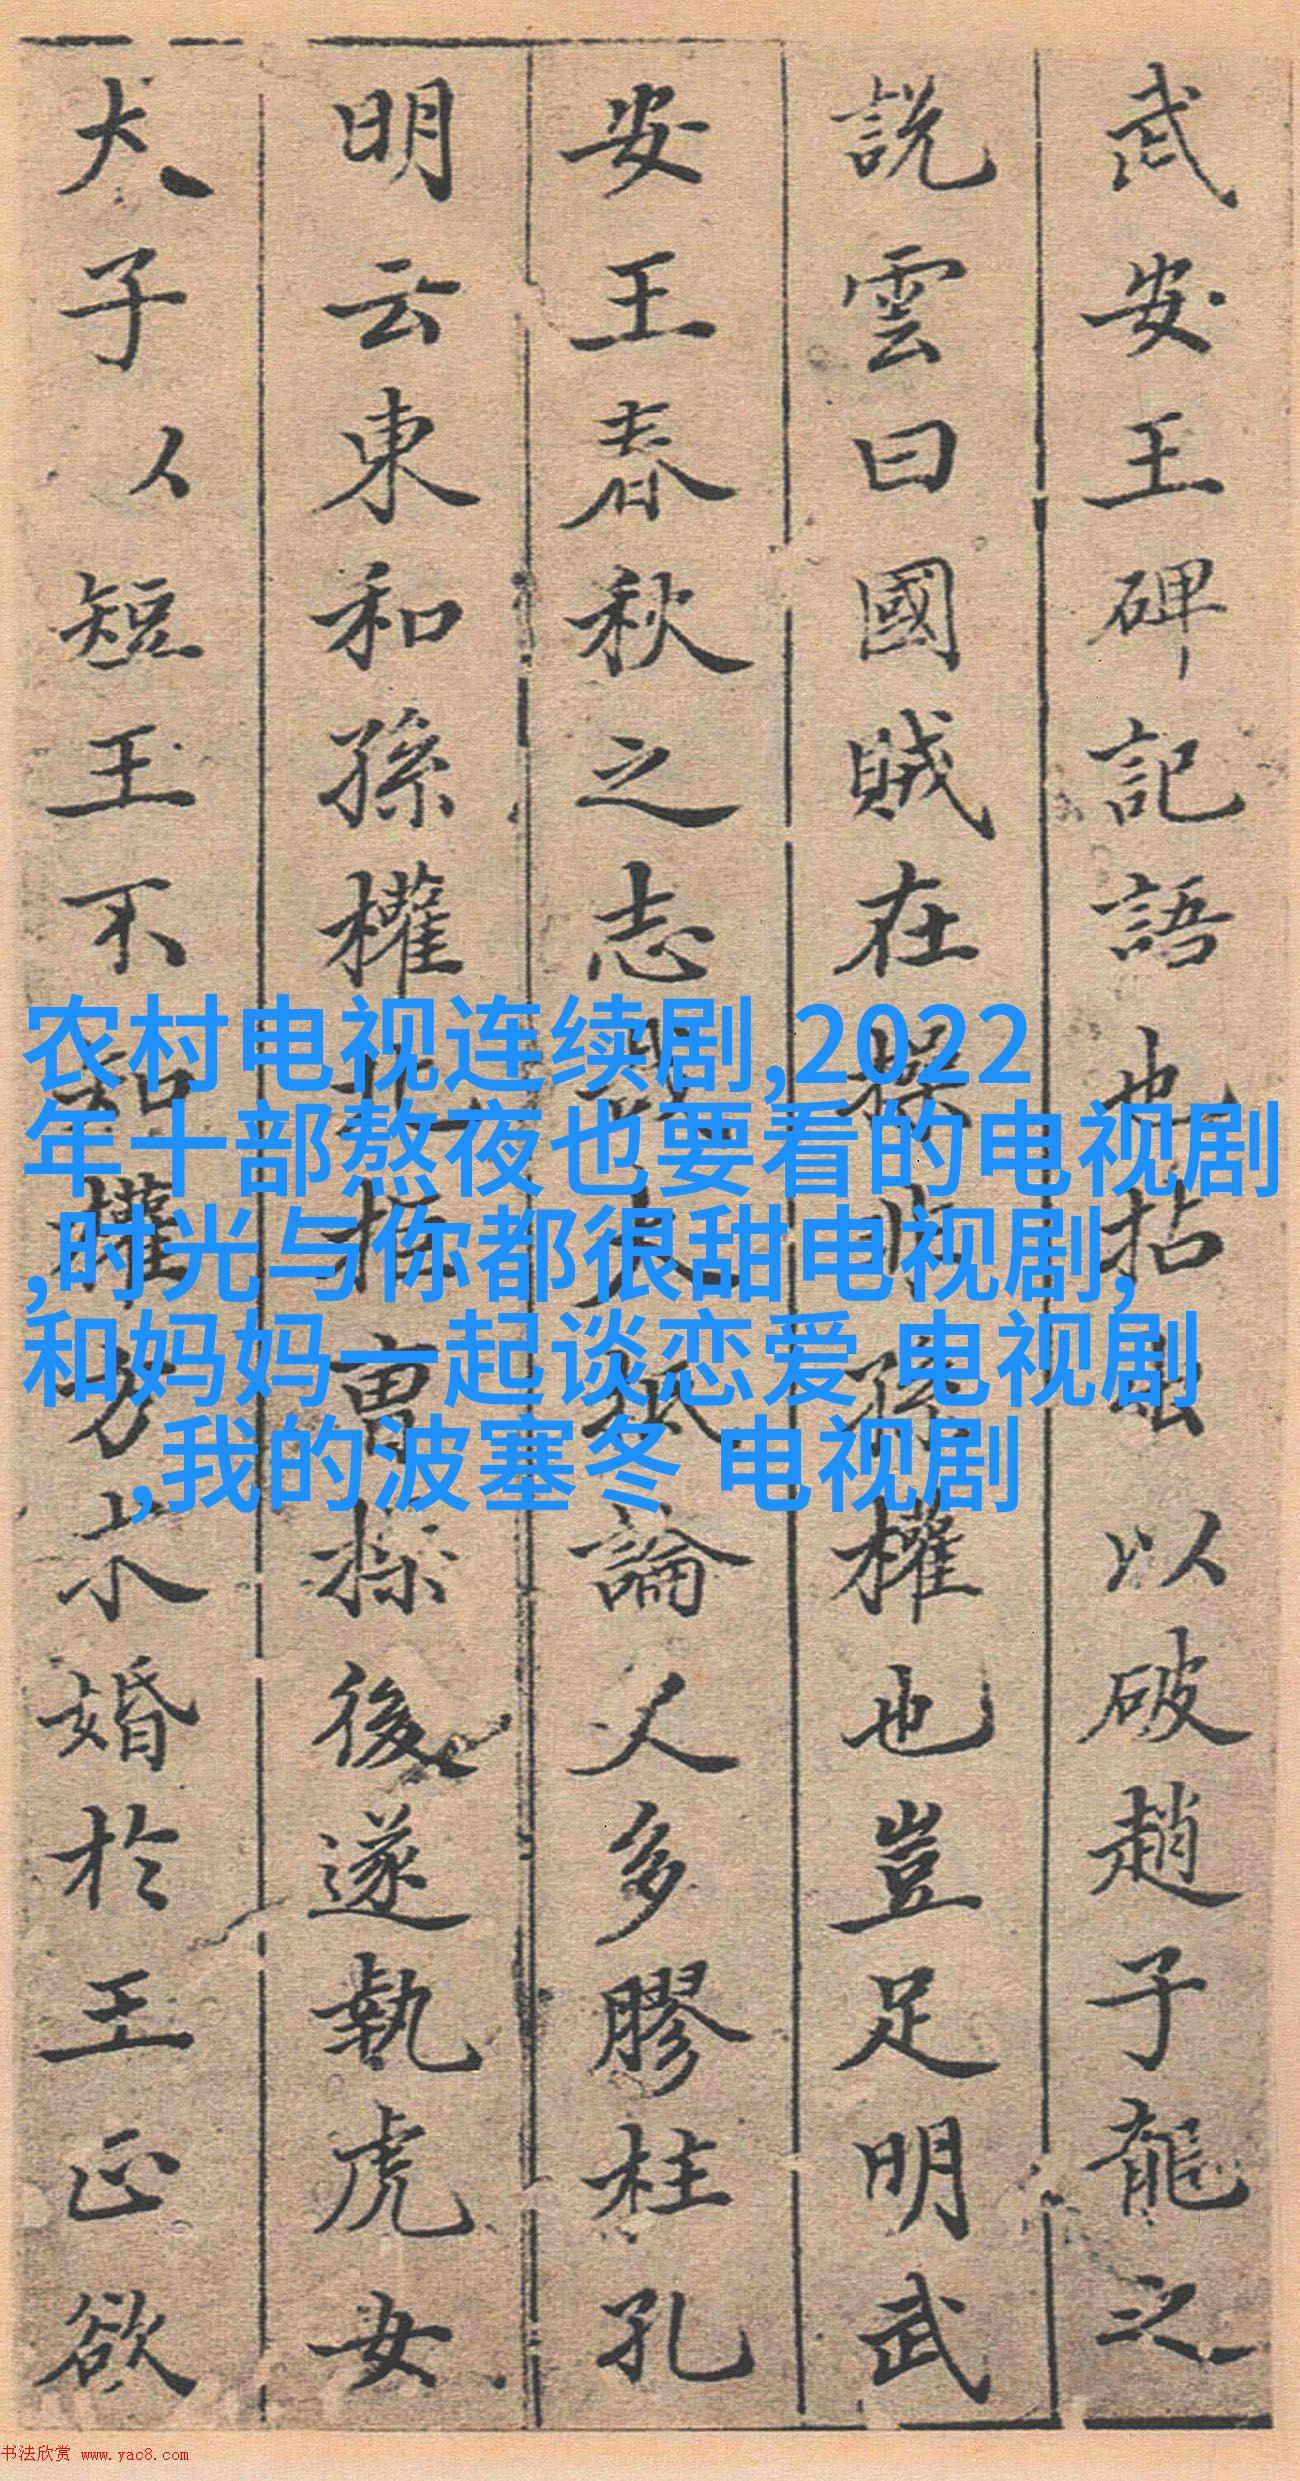 武安王碑記語也拈出以破趙子龍之
說雲曰國賊在操非孫權也豈足明武
安王春秋之志論人多膠柱孔
明云東和孫權北拒曹操後遂執虎女
犬子以短王不知權方求婚於王正欲
农村电视连续剧,2022
年十部熬夜也要看的电视剧
,时光与你都很甜电视剧,
和妈妈一起谈恋爱 电视剧
,我的波塞冬 电视剧
书法欣赏 www.yac8.com